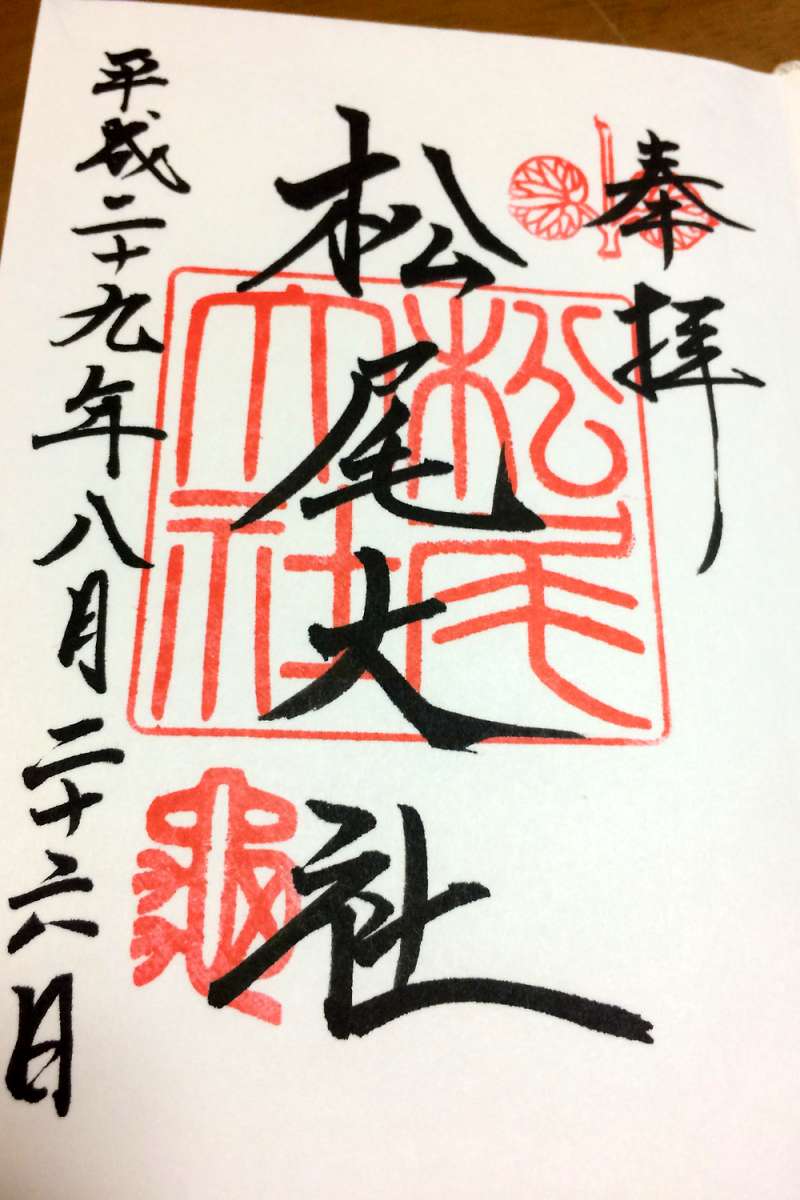 奉拝
松尾大社
松尾大社
亀
平成二十九年八月二十六日